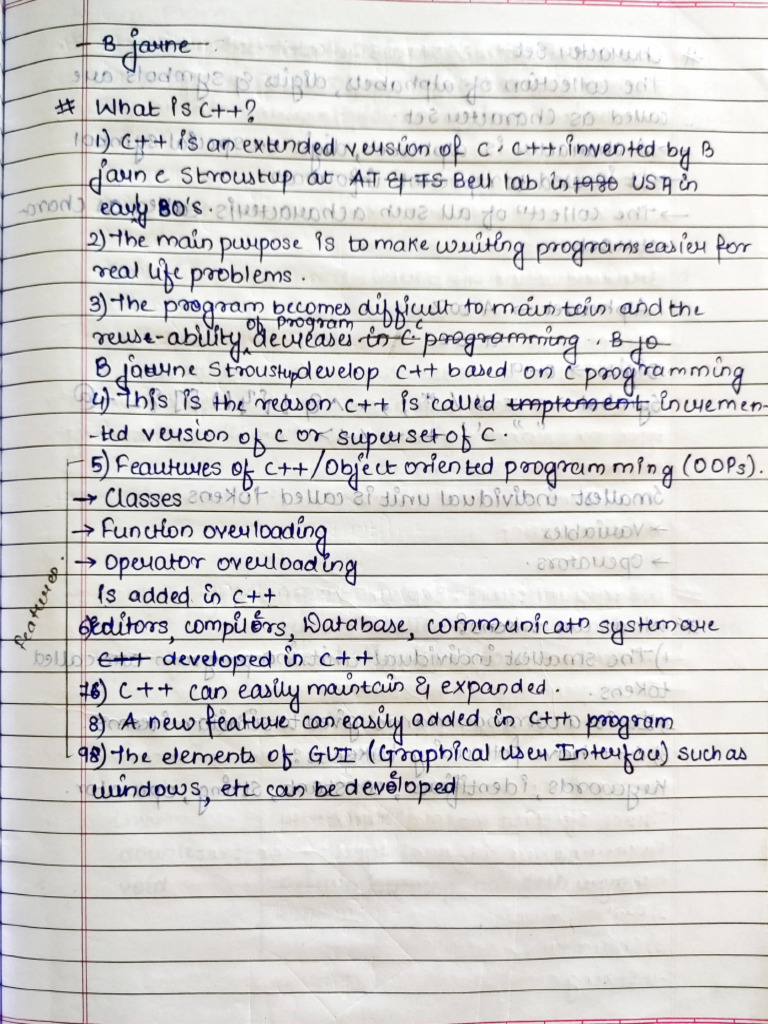 B jarne
# What is C++?
1) C++ is an extended version of C. C++ invented by B
jarne Stroustup at AT & TS Bell lab in 1980 USA in
early 80's.
2) The main purpose is to make writing programs easier for
real life problems.
3) The program becomes difficult to maintain and the
reuse-ability of program decreases in C programming. B jo
B jarne Stroustup develop C++ based on C programming
4) This is the reason C++ is called implement incremen-
-ted version of C or superset of 'C.
5) Feautures of C++/Object oriented programming (OOPs).
→ Classes
→ Function overloading
→ Operator overloading
is added in C++
6) editors, compilers, Database, communicatn system are
C++ developed in C++
7) C++ can easily maintain & expanded.
8) A new feature can easily added in C++ program
9) The elements of GUI (Graphical User Interface) such as
windows, etc can be developed
features.